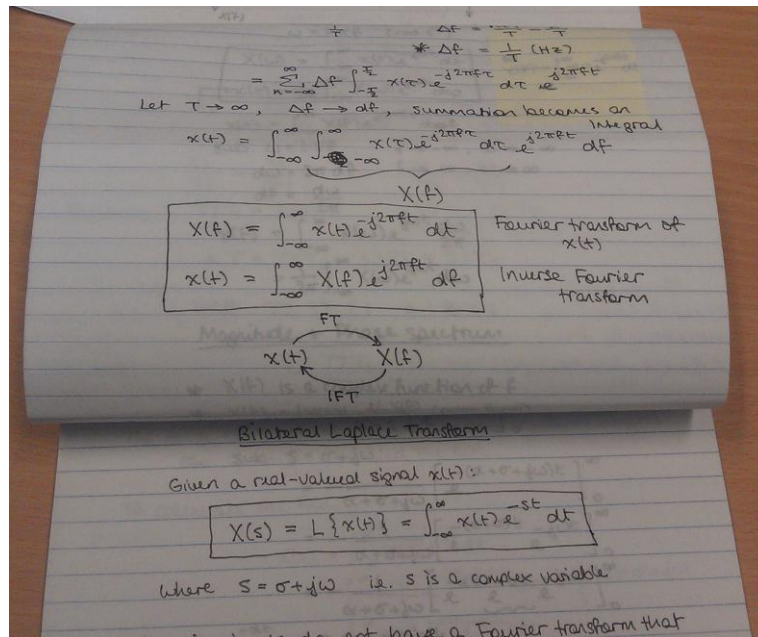 Δf =
* Δf = 1/T (Hz)
= ∑_{n=-∞}^{∞} Δf ∫_{-T/2}^{T/2} x(τ) e^{-j2πfτ} dτ e^{j2πft}
Let T → ∞, Δf → df, summation becomes an
Integral
x(t) = ∫_{-∞}^{∞} ∫_{-∞}^{∞} x(τ) e^{-j2πfτ} dτ e^{j2πft} df
X(f)
X(f) = ∫_{-∞}^{∞} x(t) e^{-j2πft} dt Fourier transform of
x(t)
x(t) = ∫_{-∞}^{∞} X(f) e^{j2πft} df Inverse Fourier
transform
FT
x(t) X(f)
IFT
Bilateral Laplace Transform
Given a real-valued signal x(t):
X(s) = L{x(t)} = ∫_{-∞}^{∞} x(t) e^{-st} dt
where s = σ + jω i.e. s is a complex variable
not have a Fourier transform that